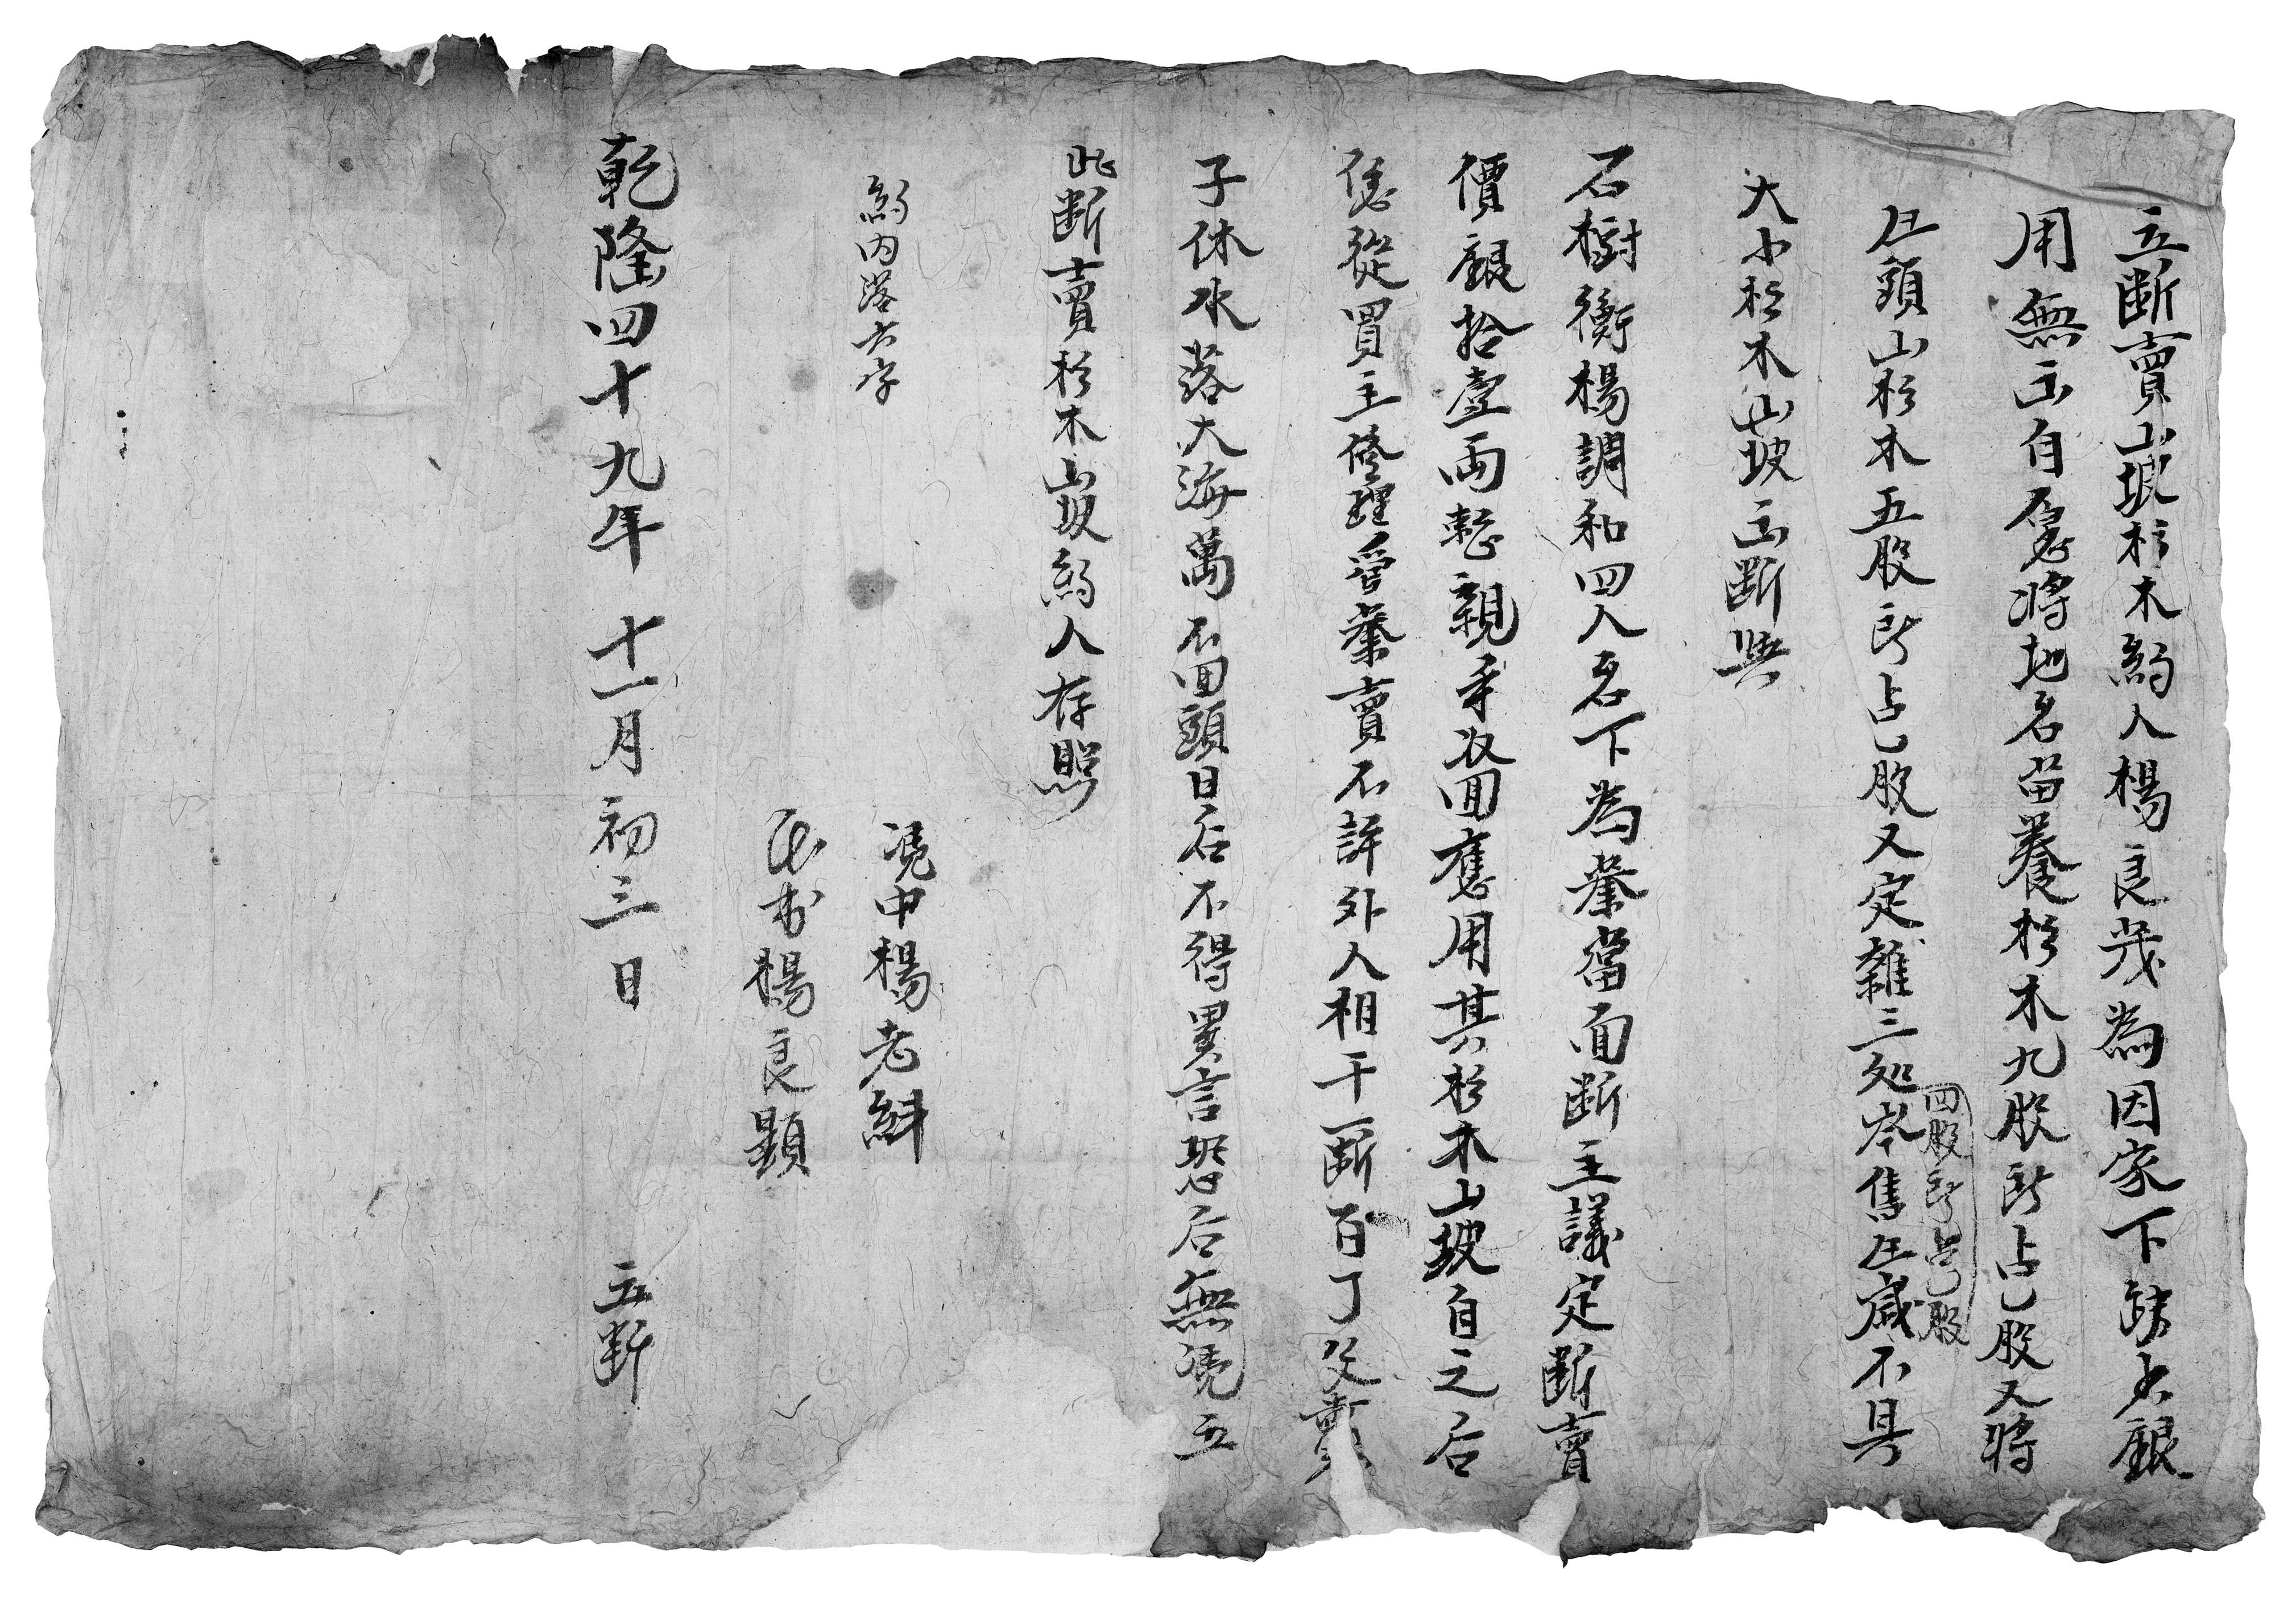 立断賣山坡杉木約人楊良茂為因家下缺少銀
用無出自愿將地名苗養杉木九股所占乙股又將
庄頭山杉木五股所占乙股又定雜三処岑售庄崴不具
四股所占乙股
大小杉木山坡出断與
石樹衡楊調和四人名下為業當面断主議定断賣
價銀拾壹両整親手收回應用其杉木山坡自之后
恁從買主修理管業賣不許外人相干一断百了父賣
子休水落大海萬不囬頭日后不得異言恐后無凴立
此断賣杉木山坡約人存照
約内落六字
凴中楊老糾
代書楊良顕
乾隆四十九年十一月初三日 立断